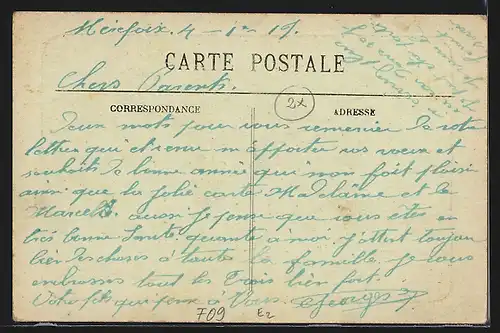 4 - 1er 19.
CARTE POSTALE
Chers Parents.
CORRESPONDANCE
ADRESSE
2x
Deux mots pour vous remercier de votre
lettre qui vienne m'apporter vos voeux et
souhaits de bonne année qui mon fait plaisir
ainsi que la jolie carte Madeleine et de
Marcel. aussi Je pense que vous êtes en
très bonne Santé quante à moi J'attent toujour
bien des choses à toute la famille. Je vous
embrasses tout les Trois bien fort.
Votre fils qui pense à Vous. Georges
709
E2